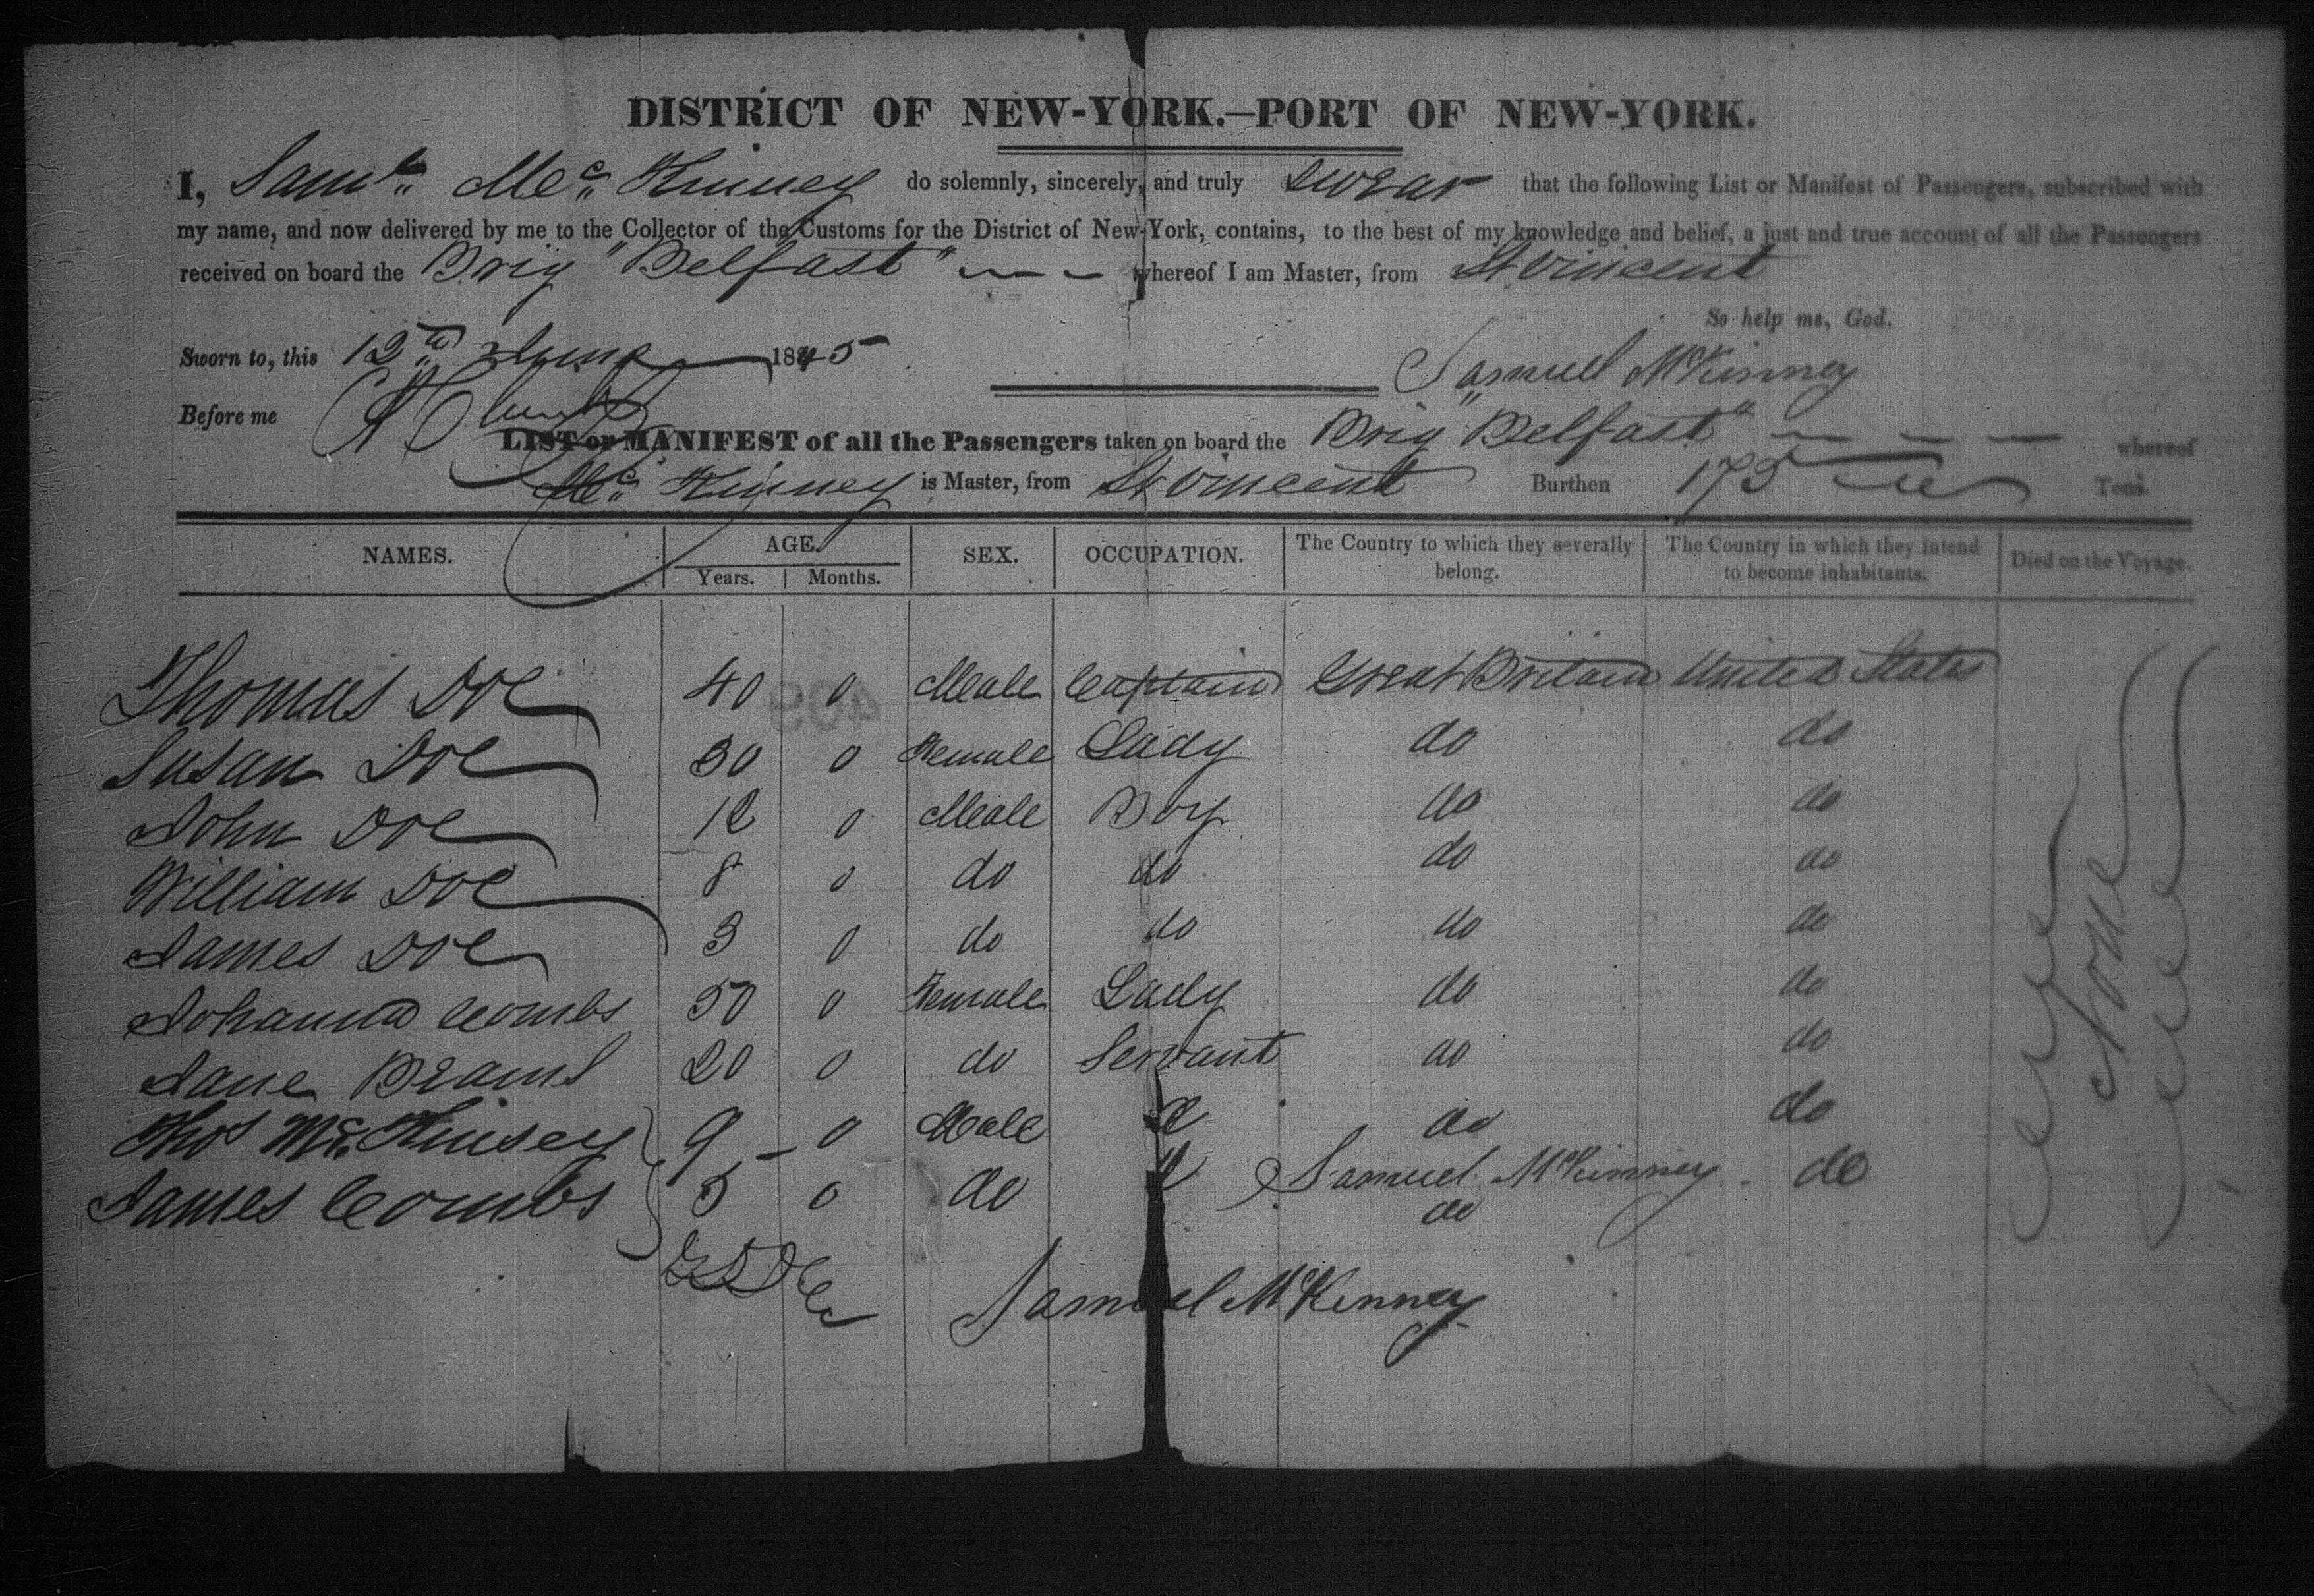 DISTRICT OF NEW-YORK.—PORT OF NEW-YORK.
I, Saml. Mc. Kinney do solemnly, sincerely, and truly swear that the following List or Manifest of Passengers, subscribed with
my name, and now delivered by me to the Collector of the Customs for the District of New-York, contains, to the best of my knowledge and belief, a just and true account of all the Passengers
received on board the Brig "Belfast" whereof I am Master, from St Vincent
So help me, God.
Sworn to, this 12th June 1845
Samuel McKinney
Before me
LIST or MANIFEST of all the Passengers taken on board the Brig "Belfast" whereof
Mc. Kinney is Master, from St Vincent Burthen 175 Tons.
NAMES. AGE. SEX. OCCUPATION. The Country to which they severally belong. The Country in which they intend to become inhabitants. Died on the Voyage.
Years. Months.
Thomas Doe 40 0 Male Captain Great Britain United States
Susan Doe 30 0 Female Lady do do
John Doe 12 0 Male Boy do do
William Doe 8 0 do do do do
James Doe 3 0 do do do do
Johanna Combs 50 0 Female Lady do do
Jane Beams 20 0 do Servant do do
Thos Mc. Kinsey 9 - 0 Male do do
James Combs 5 0 do Samuel McKinney do
do
None
Samuel McKinney
409